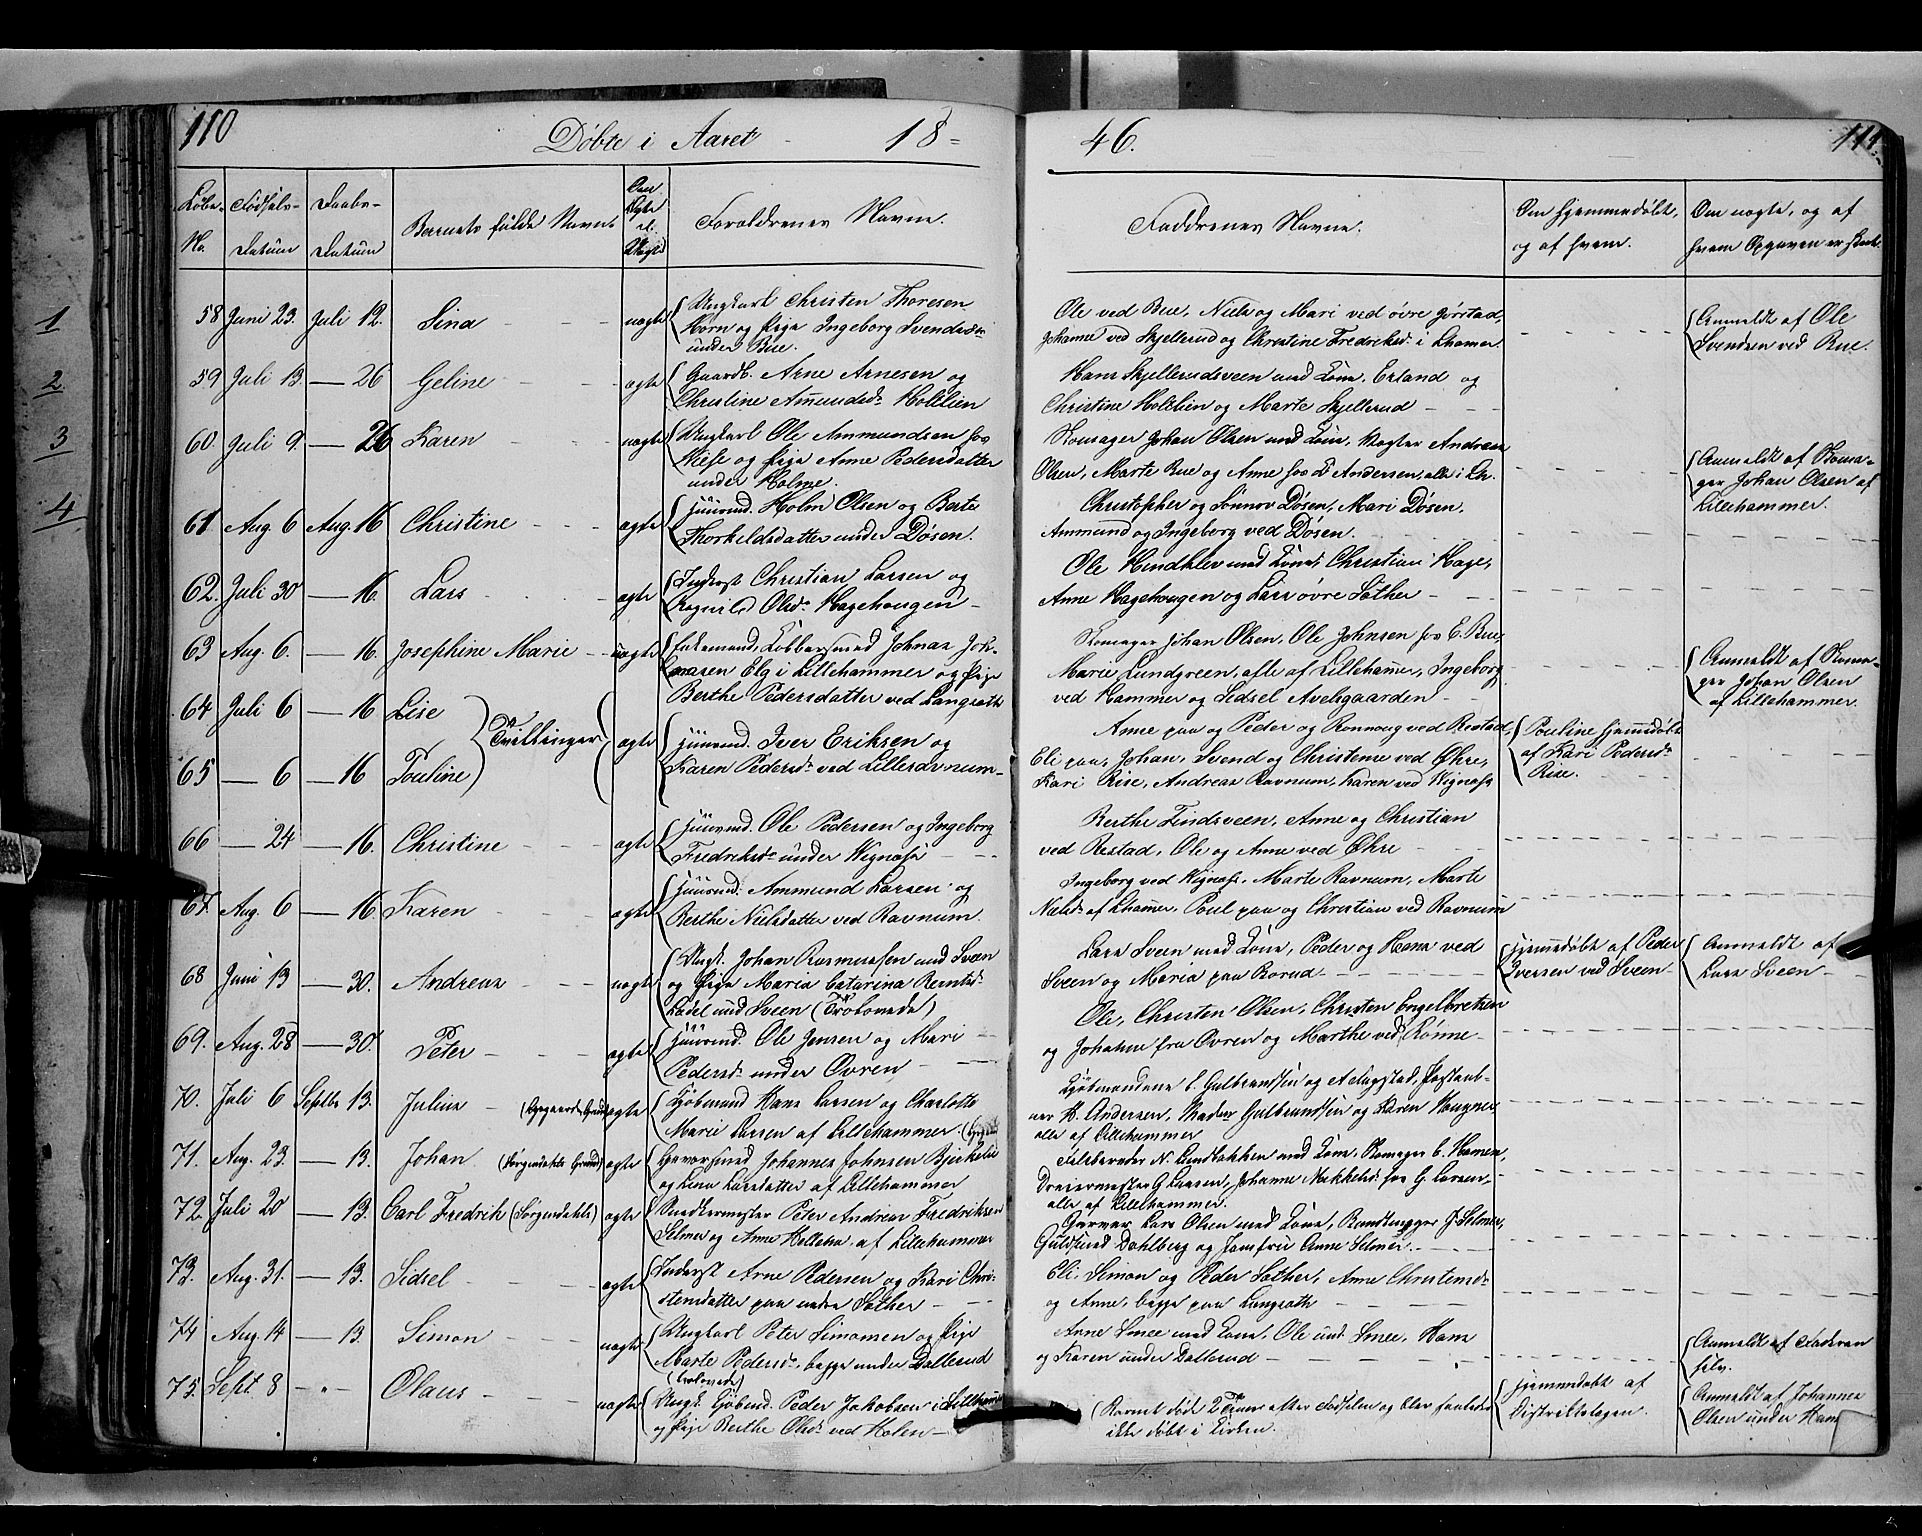 110
Døbte i Aaret
18
46.
111
Løbe-
No.
Fødsels-
Datum
Daabs-
Datum
Barnets fulde Navn
Om
Ægte
el.
Uægte
Forældrenes Navne.
Faddrenes Navne.
Om hjemmedøbt,
og af hvem.
Om uægte, og af
hvem Opgaven er skeet.
1
2
3
4
58 Juni 23. Juli 12. Sina uægte
Ungkarl Christen Thoresen
Horn og Pige Ingeborg Svendsd.
under Bue.
Ole ved Bue, Niels og Mari ved øvre Jørstad,
Johanne ved Skjellerud og Christine Fredriksd. i Lhamer.
Anmeldt af Ole
Svendsen ved Bue.
59 Juli 13. — 26 Geline ægte
Gaardb. Arne Arnesen og
Christine Amundsd. Holtlien
Hans Skjellerudsveen med Kone, Erland og
Christine Holtlien og Marte Skjellerud
60. Juli 9. — 26 Karen uægte
Ungkarl Ole Ammundsen hos
Wiese og Pige Anne Pedersdatter
under Holme.
Skomager Johan Olsen med Kone, Vægter Andreas
Olsen, Marte Bue og Anne hos L. Andersen, alle i Lh.
Anmeldt af Skoma-
ger Johan Olsen af
Lillehammer.
61. Aug. 6 Aug. 16 Christine ægte
Huusmd. Holm Olsen og Berte
Thorkeldsdatter under Døsen.
Christopher og Sønnøv Døsen, Mari Døsen,
Ammund og Ingeborg ved Døsen.
62. Juli 30 — 16. Lars ægte
Inderst Christian Larsen og
Ragnild Olsd. Hagehougen
Ole Hindklev med Kone, Christian Hage,
Anne Hagehougen og Lars øvre Sother
63 Aug. 6. — 16. Josephine Marie uægte
Enkemand, Kobbersmed Johnas Joh-
nasen Elg i Lillehammer og Pige
Berthe Pedersdatter ved Langrath
Skomager Johan Olsen, Ole Johnsen hos E. Bue,
Marie Lundgreen, alle af Lillehamer, Ingeborg
ved Hammer og Sidsel Avelsgaarden
Anmeldt af Skoma-
ger Johan Olsen
af Lillehammer.
64 Juli 6 — 16 Lise
65 — 6 — 16 Pouline
Tvillinger ægte
Huusmd. Iver Eriksen og
Karen Pedersd. ved Lilleravnum
Anne paa og Peder og Ronnoug ved Restad,
Eli paa, Johan, Svend og Christense ved Øhre,
Kari Rise, Andreas Ravnum, Karen ved Wignæs
Pouline hjemedøbt
af Kari Pedersd.
Rise.
66 — 24 — 16. Christine ægte
Huusmd. Ole Pedersen og Ingeborg
Fredriksd. under Wignæs
Berthe Findsveen, Anne og Christian
ved Restad, Ole og Anne ved Øhre
67. Aug. 6 — 16. Karen ægte
Huusmd. Ammund Larsen og
Berthe Nielsdatter ved Ravnum.
Ingeborg ved Wignæs, Marte Ravnum, Marte
Nielsd. af Lhamer, Poul paa og Christian ved Ravnum
68 Juni 13 — 30. Andreas uægte
Ungk. Johan Rasmussen und Sveen
og Pige Maria Catarina Berntsd.
Ladel und Sveen (Trolovede)
Lars Sveen med Kone, Peder og Hans ved
Sveen og Maria paa Rorud
Hjemmedøbt af Peder
Iversen ved Sveen
Anmeldt af
Lars Sveen
69. Aug. 28 — 30. Peter ægte
Huusmd. Ole Jensen og Mari
Pedersd. under Ovren
Ole, Christen Olsen, Christen Engelbretsen
og Johanne fra Ovren og Marthe ved Rønne
70. Juli 6 Septbr 13. Julius ægte
Kjøbmand Hans Larsen og Charlotte
Marie Larsen af Lillehammer
Kjøbmændene C. Gulbrandsen og
H. Andersen, Madm Gulbrandsen og Karen
alle af Lillehammer
71. Aug. 23. — 13. Johan (Jørgendahls Grund) ægte
Johannes Johnsen Bjerkelie
og Lena Larsdatter af Lillehammer
Feldbereder N. Lundbakken med Kone, Skomager C. Hansen,
Dreiermester G. Larsen, Johanne Mikkelsd. hos G. Larsen,
alle af Lillehammer.
72. Juli 20 — 13. Carl Fredrik (Jørgendahls) ægte
Snedkermester Peter Andreas Fredriksen
Selmer og Anne Helleha af Lillehammer
Garver Lars Olsen med Kone, Bundtmager J. Selmer,
Guldsmed Dahlberg og Jomfru Anne Selmer.
73. Aug. 31. — 13. Sidsel ægte
Inderst Arne Pedersen og Kari Chri-
stensdatter paa nedre Sother
Eli, Simon og Peder Sother, Anne Christensd.
og Anne, begge paa Langrath
74 Aug. 14 — 13. Simon uægte
Ungkarl Peter Simonsen og Pige
Marte Pedersd. begge under Dallerud
(trolovede)
Arne Smee med Kone, Ole und. Smee, Hans
og Karen under Dallerud
Anmeldt af Faderen
selv.
75. Sept 8 — " — Olaus uægte
Ungk. Kjøbmd. Peder Jakobsen i Lillehamer
og Pige Berthe Olsd. ved Holen
(Barnet døde 2 Timer efter Fødselen og blev saaledes
ikke døbt i Kirken.
Hjemmedøbt af
Distriktslægen.
Anmeldt af Johannes
Olsen under Ham